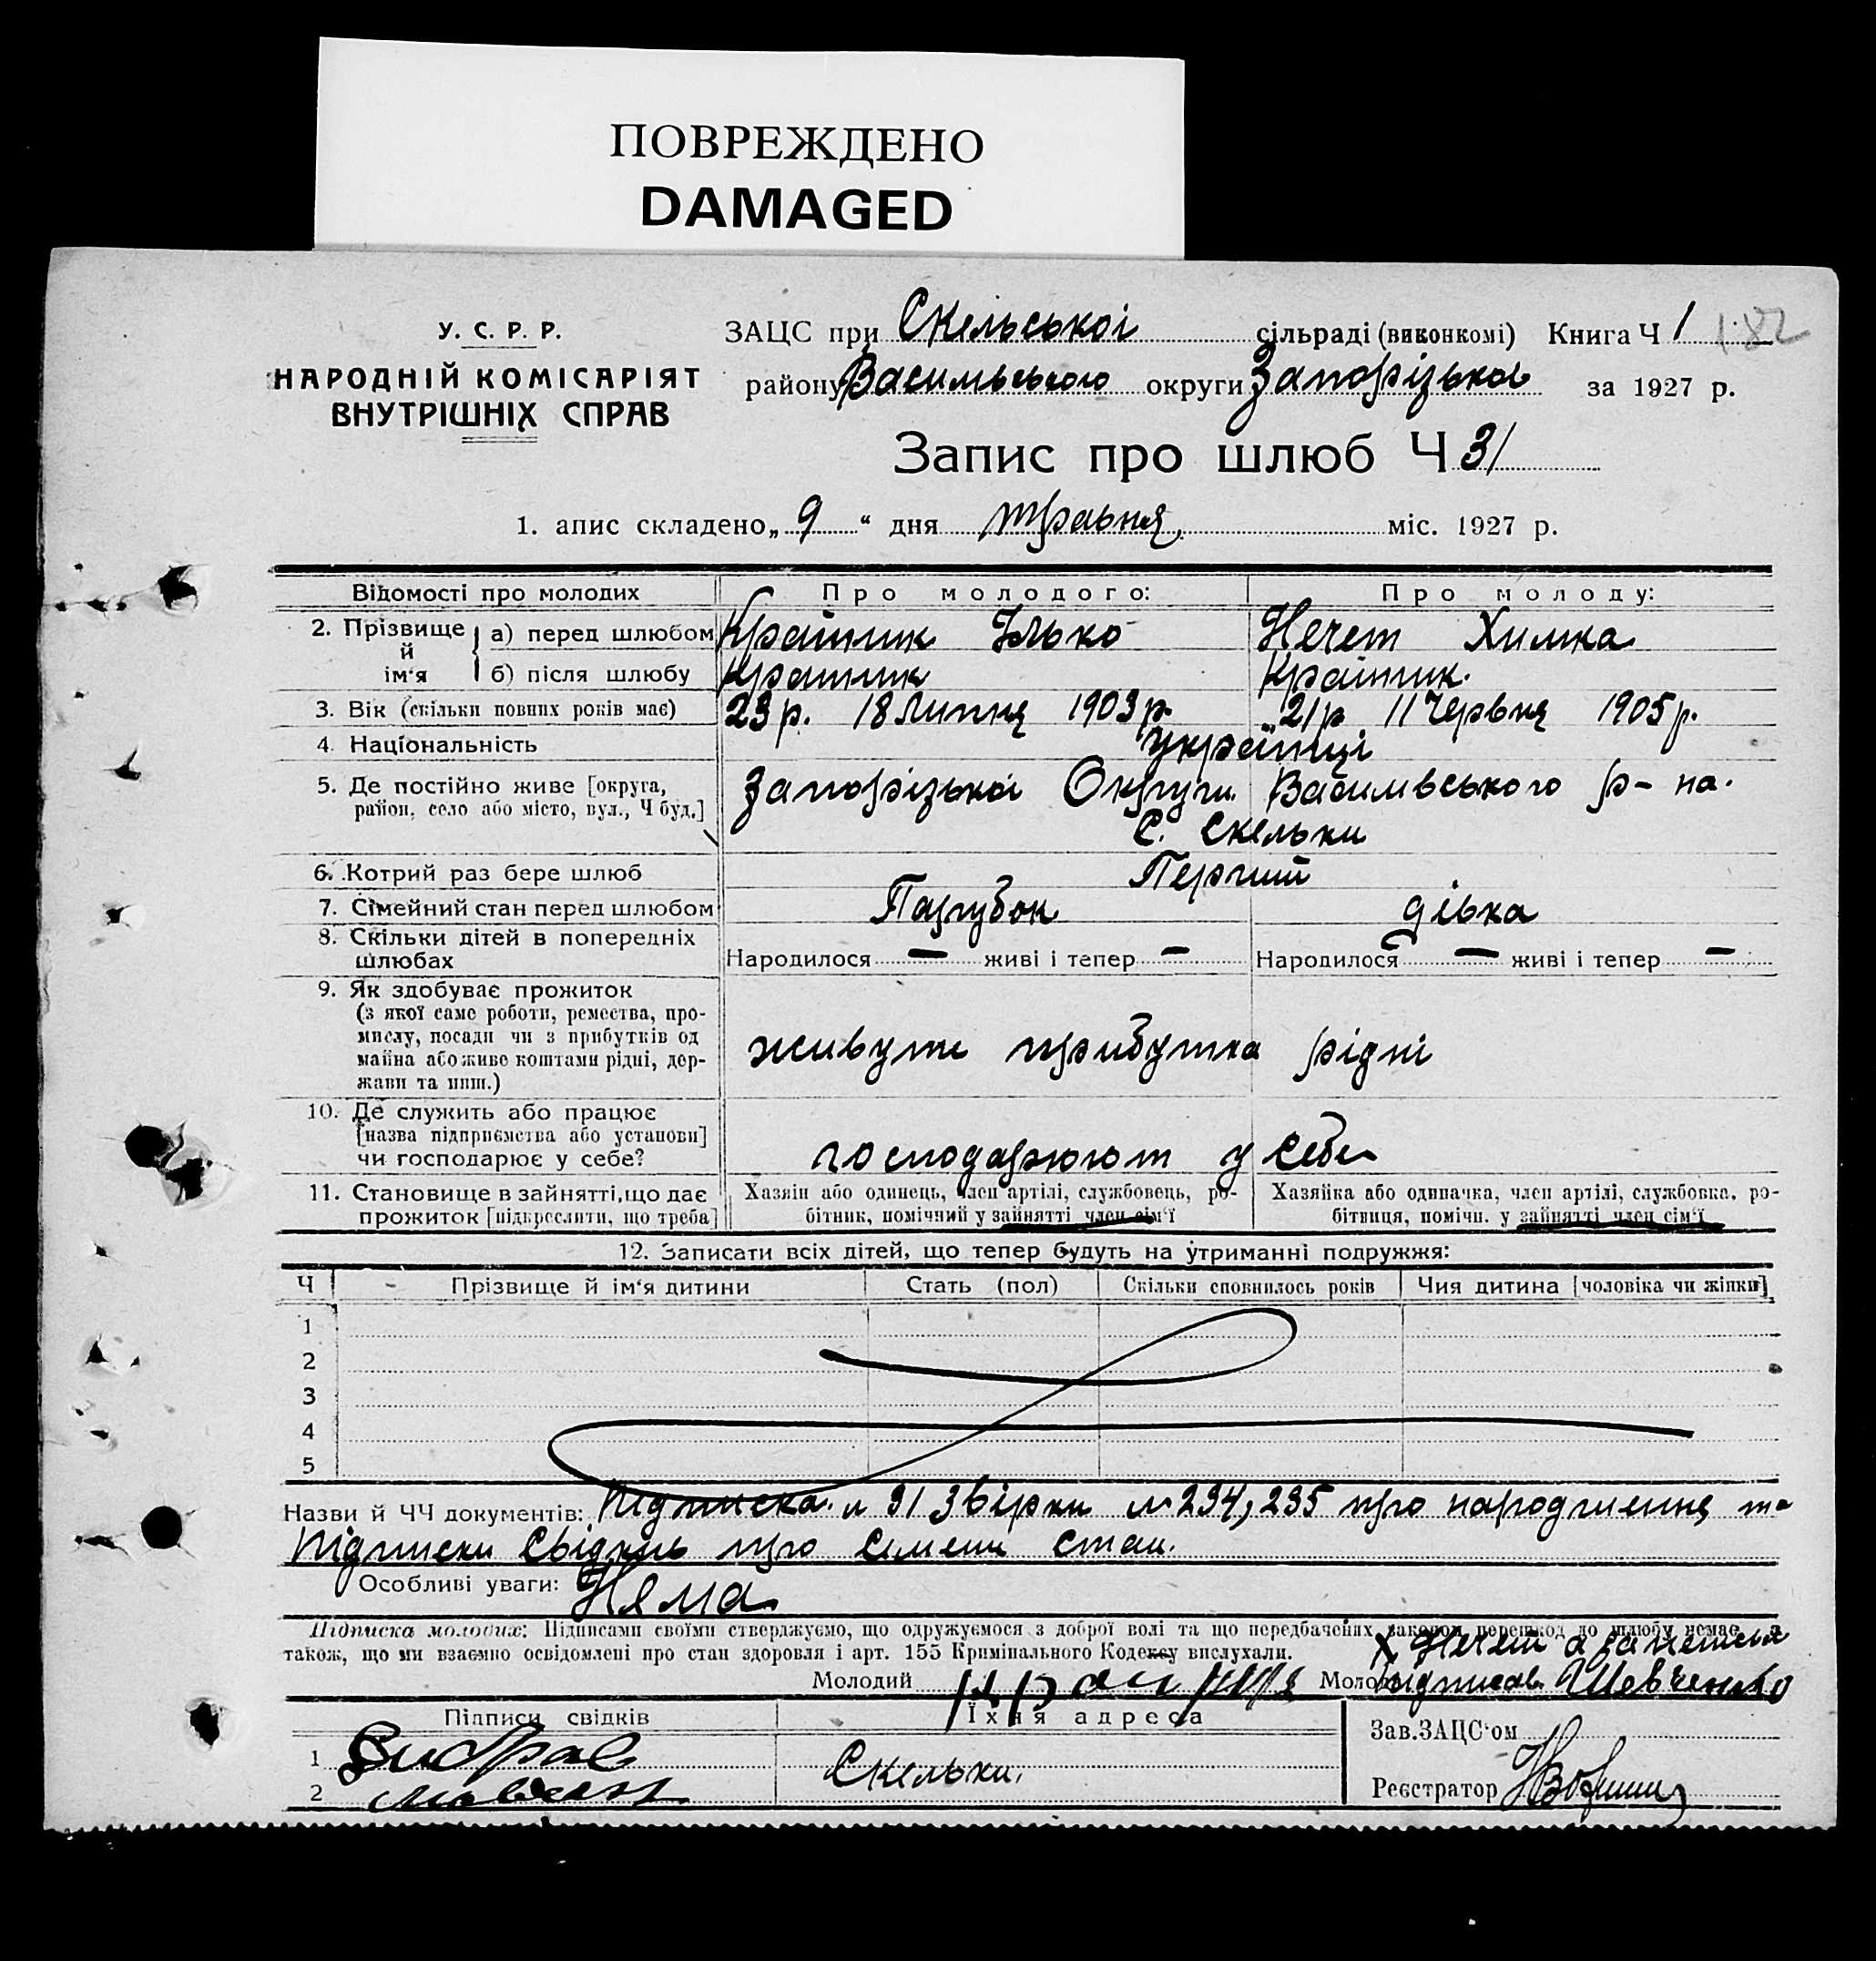 ПОВРЕЖДЕНО
DAMAGED
У. С. Р. Р.
НАРОДНІЙ КОМІСАРІЯТ
ВНУТРІШНІХ СПРАВ
ЗАЦС при Скельської сільраді (виконкомі) Книга Ч 1 182
району Василівського округи Запорізької за 1927 р.
Запис про шлюб Ч 31
1. апис складено „ 9 “ дня травня міс. 1927 р.
Відомості про молодих Про молодого: Про молоду:
2. Прізвище й ім‘я а) перед шлюбом Ілько Нечет Химка
б) після шлюбу
3. Вік (скільки повних років має) 23 р. 18 липня 1903 р. 21 р 11 червня 1905 р.
4. Національність українці
5. Де постійно живе [округа, Запорізької Округи Василівського р-на.
район, село або місто, вул., Ч буд.] С. Скельки
6. Котрий раз бере шлюб Перший
7. Сімейний стан перед шлюбом Парубок дівка
8. Скільки дітей в попередніх
шлюбах Народилося — живі і тепер — Народилося — живі і тепер —
9. Як здобуває прожиток
(з якої саме роботи, ремества, про-
мислу, посади чи з прибутків од
майна або живе коштами рідні, дер- живуть прибутка рідні
жави та инш.)
10. Де служить або працює
[назва підприємства або установи]
чи господарює у себе? господарюют у себе
11. Становище в зайнятті, що дає Хазяїн або одинець, член артілі, службовець, ро- Хазяйка або одиначка, член артілі, службовка, ро-
прожиток [підкреслити, що треба] бітник, помічний у зайнятті член сім‘ї бітниця, помічн. у зайнятті член сім‘ї
12. Записати всіх дітей, що тепер будуть на утриманні подружжя:
Ч Прізвище й ім‘я дитини Стать (пол) Скільки сповнилось років Чия дитина [чоловіка чи жінки]
1
2
3
4
5
Назви й ЧЧ документів: Підписка 31 Звірки № 234, 235 про народження та
Підписки свідків про стан.
Особливі уваги: Нема
Підписка молодих: Підписами своїми стверджуємо, що одружуємося з доброї волі та що передбачених законом перешкод до шлюбу немає, а
також, що ми взаємно освідомлені про стан здоровля і арт. 155 Кримінального Кодексу вислухали. Нечет а за
Молодий Молода підписав Шевченко
Підписи свідків Їхня адреса Зав. ЗАЦС‘ом
1 Скельки.
2 Реєстратор